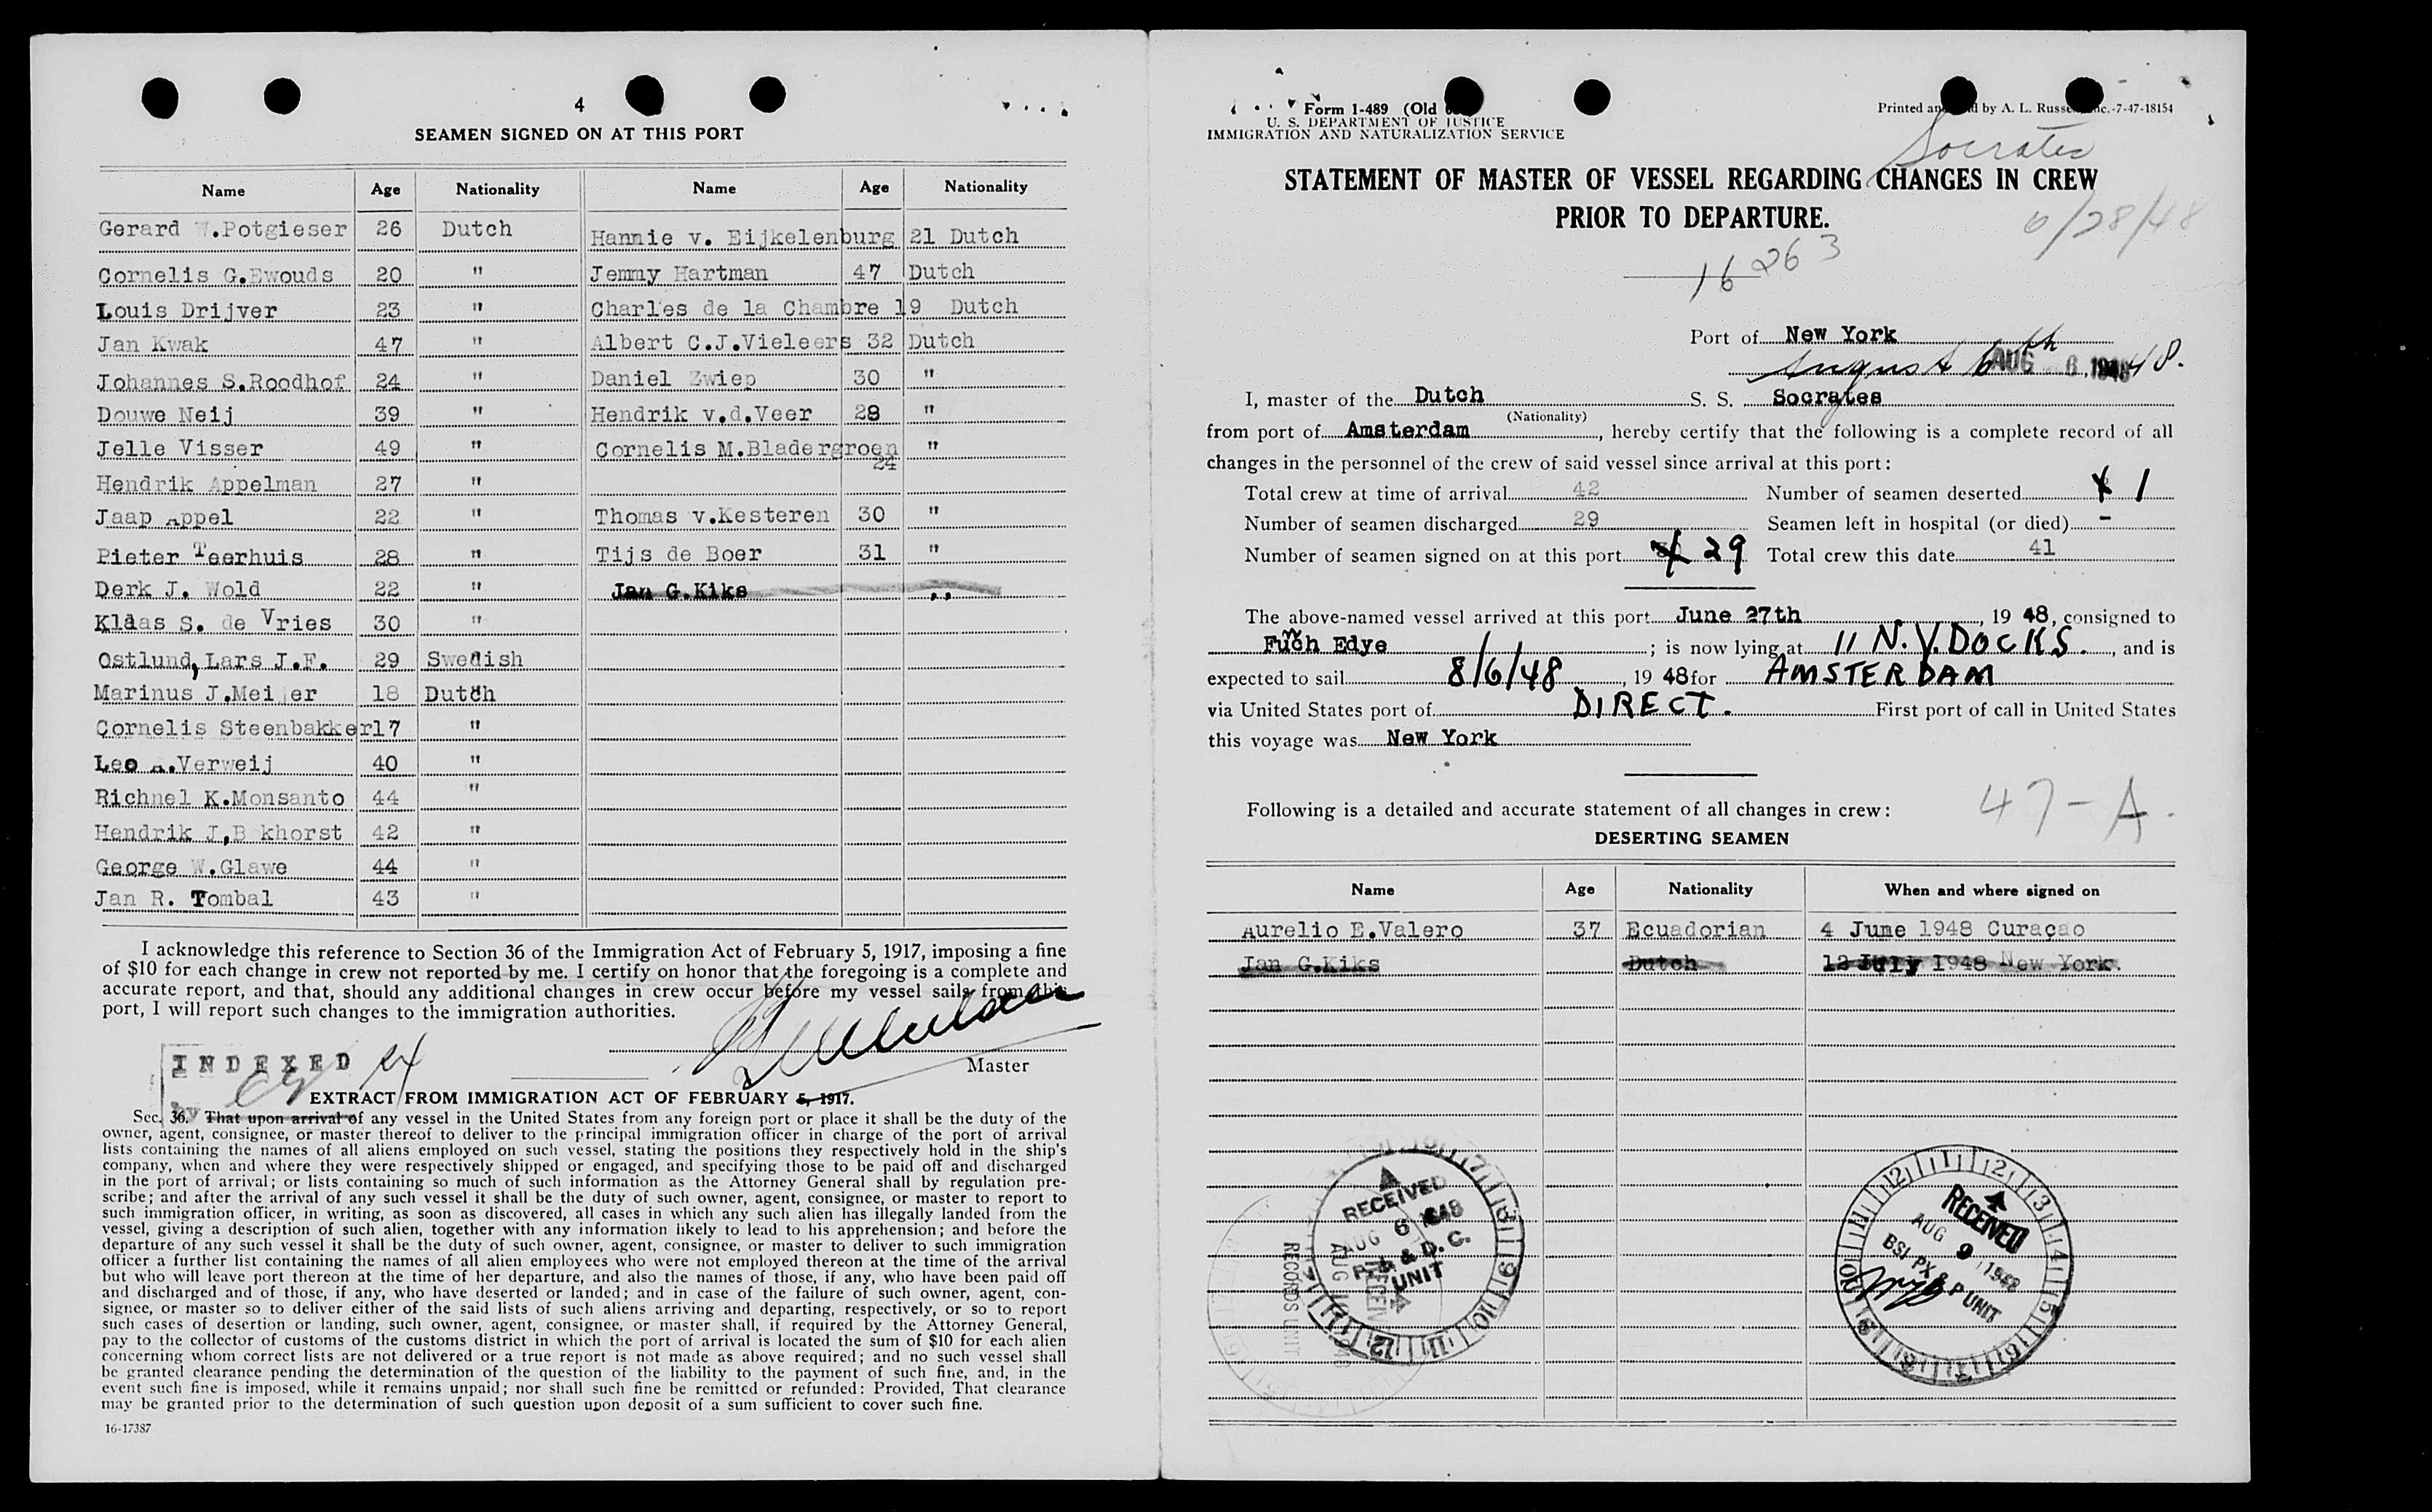 4
SEAMEN SIGNED ON AT THIS PORT
Name Age Nationality Name Age Nationality
Gerard W.Potgieser 26 Dutch Hannie v. Eijkelenburg 21 Dutch
Cornelis G.Ewouds 20 " Jemmy Hartman 47 Dutch
Louis Drijver 23 " Charles de la Chambre 19 Dutch
Jan Kwak 47 " Albert C.J.Vieleers 32 Dutch
Johannes S.Roodhof 24 " Daniel Zwiep 30 "
Douwe Neij 39 " Hendrik v.d.Veer 28 "
Jelle Visser 49 " Cornelis M.Bladergroen 24 "
Hendrik Appelman 27 "
Jaap Appel 22 " Thomas v.Kesteren 30 "
Pieter Teerhuis 28 " Tijs de Boer 31 "
Derk J. Wold 22 " Jan G.Kiks ,,
Klaas S. de Vries 30 "
Ostlund, Lars J.F. 29 Swedish
Marinus J.Meijer 18 Dutch
Cornelis Steenbakker 17 "
Leo A.Verweij 40 "
Richnel K.Monsanto 44 "
Hendrik J,B khorst 42 "
George W.Glawe 44 "
Jan R. Tombal 43 "
I acknowledge this reference to Section 36 of the Immigration Act of February 5, 1917, imposing a fine
of $10 for each change in crew not reported by me. I certify on honor that the foregoing is a complete and
accurate report, and that, should any additional changes in crew occur before my vessel sails from this
port, I will report such changes to the immigration authorities.
INDEXED
Master
EXTRACT FROM IMMIGRATION ACT OF FEBRUARY 5, 1917.
Sec. 36. That upon arrival of any vessel in the United States from any foreign port or place it shall be the duty of the
owner, agent, consignee, or master thereof to deliver to the principal immigration officer in charge of the port of arrival
lists containing the names of all aliens employed on such vessel, stating the positions they respectively hold in the ship's
company, when and where they were respectively shipped or engaged, and specifying those to be paid off and discharged
in the port of arrival; or lists containing so much of such information as the Attorney General shall by regulation pre-
scribe; and after the arrival of any such vessel it shall be the duty of such owner, agent, consignee, or master to report to
such immigration officer, in writing, as soon as discovered, all cases in which any such alien has illegally landed from the
vessel, giving a description of such alien, together with any information likely to lead to his apprehension; and before the
departure of any such vessel it shall be the duty of such owner, agent, consignee, or master to deliver to such immigration
officer a further list containing the names of all alien employees who were not employed thereon at the time of the arrival
but who will leave port thereon at the time of her departure, and also the names of those, if any, who have been paid off
and discharged and of those, if any, who have deserted or landed; and in case of the failure of such owner, agent, con-
signee, or master so to deliver either of the said lists of such aliens arriving and departing, respectively, or so to report
such cases of desertion or landing, such owner, agent, consignee, or master shall, if required by the Attorney General,
pay to the collector of customs of the customs district in which the port of arrival is located the sum of $10 for each alien
concerning whom correct lists are not delivered or a true report is not made as above required; and no such vessel shall
be granted clearance pending the determination of the question of the liability to the payment of such fine, and, in the
event such fine is imposed, while it remains unpaid; nor shall such fine be remitted or refunded: Provided, That clearance
may be granted prior to the determination of such question upon deposit of a sum sufficient to cover such fine.
16-17387
Form I-489 (Old
U. S. DEPARTMENT OF JUSTICE
IMMIGRATION AND NATURALIZATION SERVICE
Printed and by A. L. Russell Inc.-7-47-18154
Socrates
STATEMENT OF MASTER OF VESSEL REGARDING CHANGES IN CREW
PRIOR TO DEPARTURE.
6/28/48
16263
Port of New York
August 6th AUG 6, 1948 48.
I, master of the Dutch S. S. Socrates
(Nationality)
from port of Amsterdam, hereby certify that the following is a complete record of all
changes in the personnel of the crew of said vessel since arrival at this port:
Total crew at time of arrival 42 Number of seamen deserted 1
Number of seamen discharged 29 Seamen left in hospital (or died) -
Number of seamen signed on at this port 29 Total crew this date 41
The above-named vessel arrived at this port June 27th, 19 48, consigned to
Funch Edye; is now lying at 11 N.Y. DOCKS., and is
expected to sail 8/6/48, 19 48 for AMSTERDAM
via United States port of DIRECT. First port of call in United States
this voyage was New York
Following is a detailed and accurate statement of all changes in crew:
47-A.
DESERTING SEAMEN
Name Age Nationality When and where signed on
Aurelio E.Valero 37 Ecuadorian 4 June 1948 Curaçao
Jan G.Kiks Dutch 12 July 1948 New York.
RECEIVED
AUG 6 1948
P. & D. C.
UNIT
RECORDS UNIT
AUG 10 1948
RECEIVED
AUG 9 1948
BSI PX & P UNIT